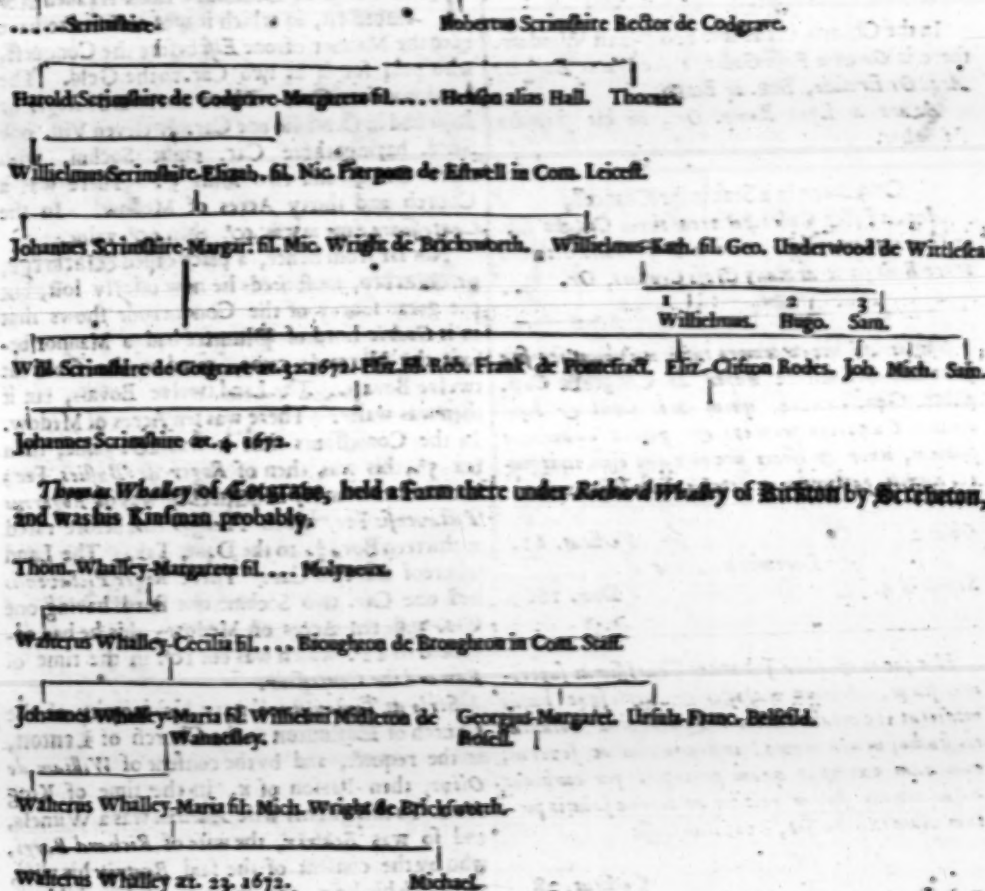 .....Scrimshire. Robertus Scrimshire Rector de Codgrave.
Harold Scrimshire de Codgrave-Margareta fil..... Henson alias Hall. Thomas.
Willielmus Scrimshire-Elizab. fil. Nic. Pierpont de Estwell in Com. Leicest.
Johannes Scrimshire-Margar. fil. Mic. Wright de Bricksworth. Willielmus-Kath. fil. Geo. Underwood de
1 2 3
Willielmus. Hugo. Sam.
Will. Scrimshire de Cotgrave æt. 32 1672.-Eliz. fil. Rob. Frank de Pontefract. Eliz.-Clifton Rodes. Joh. Mich. Sam.
Johannes Scrimshire æt. 4. 1672.
Thomas Whalley of Cotgrave, held a Farm there under Richard Whalley of by Screveton,
and was his Kinsman probably.
Thom. Whalley-Margareta fil..... Molyneux.
Walterus Whalley-Cecilia fil.... Broughton de Broughton in Com. Staff.
Johannes Whalley-Maria fil. Willielmi Midleton de Georgius-Margaret. Ursula-Franc. Belfeild.
Wannesley. Bosell.
Walterus Whalley-Maria fil. Mich. Wright de Bricksworth.
Walterus Whalley æt. 23. 1672. Michael.